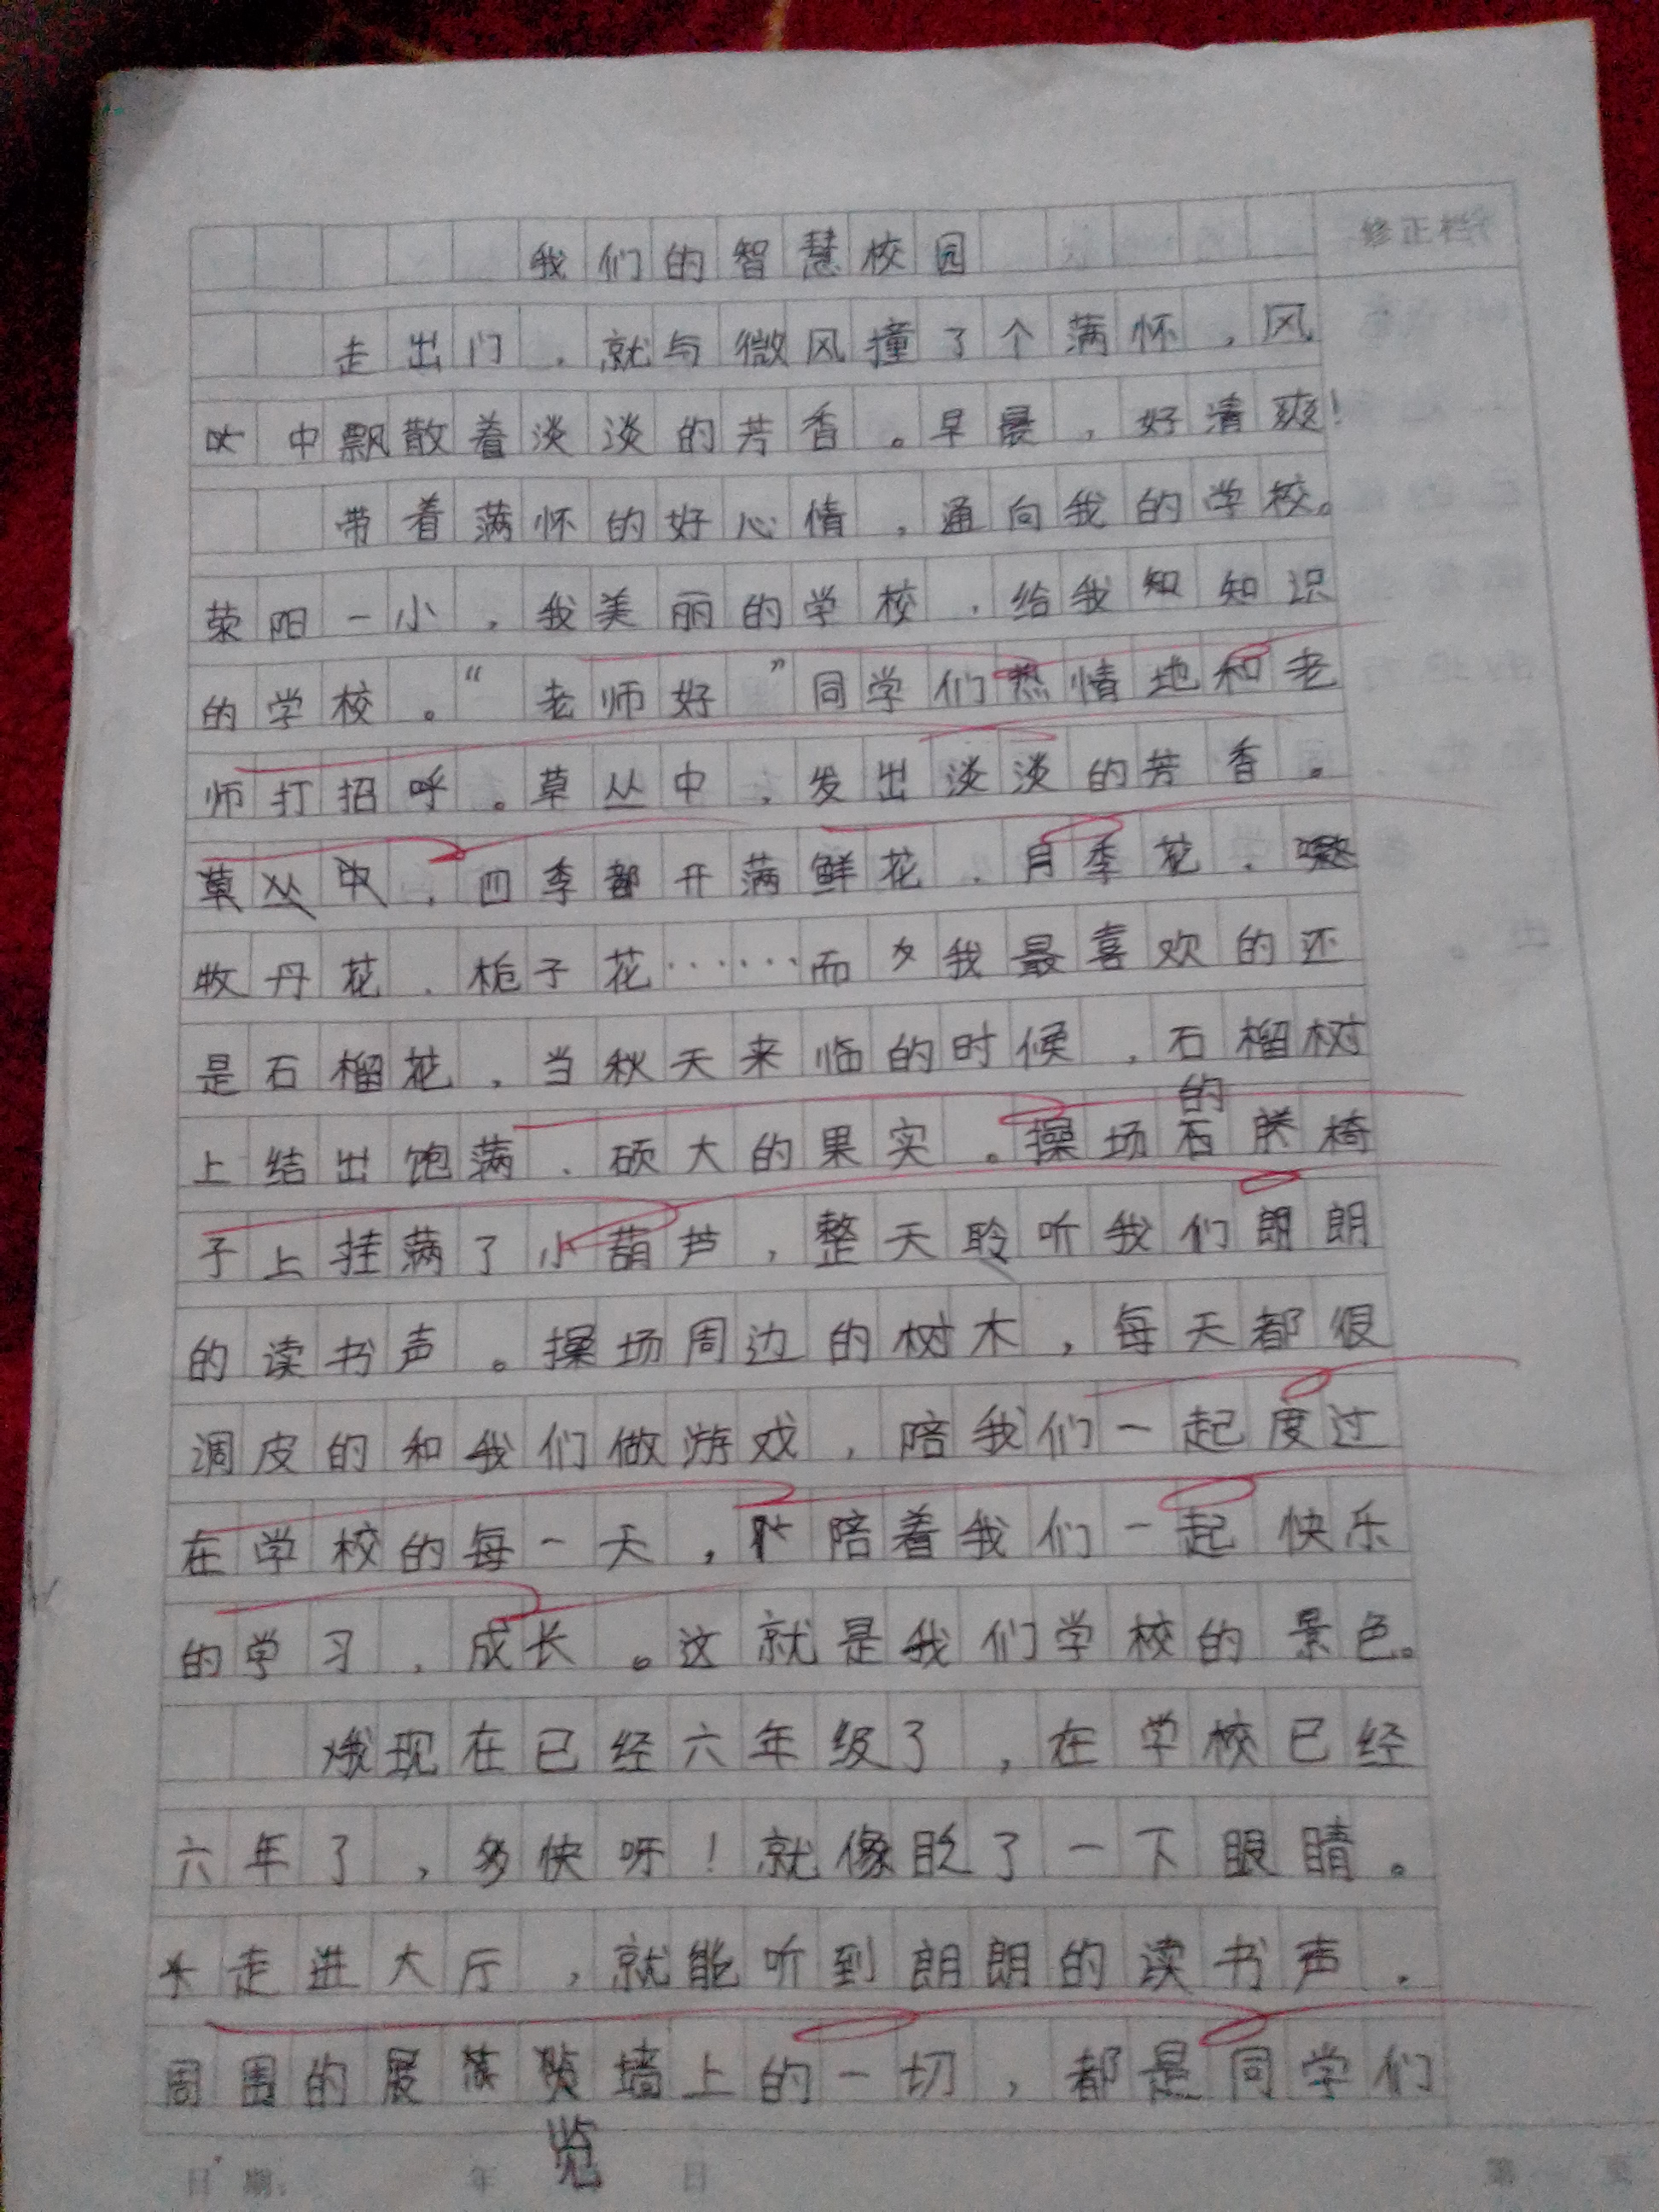 我们的智慧校园
修正栏
走出门，就与微风撞了个满怀，风
中飘散着淡淡的芳香。早晨，好清爽！
带着满怀的好心情，通向我的学校。
荥阳一小，我美丽的学校，给我知知识
的学校。“老师好”同学们热情地和老
师打招呼。草丛中，发出淡淡的芳香。
草丛中，四季都开满鲜花、月季花、
牧丹花、栀子花……而我最喜欢的还
是石榴花，当秋天来临的时候，石榴树
上结出饱满、硕大的果实。操场的石椅
子上挂满了小葫芦，整天聆听我们朗朗
的读书声。操场周边的树木，每天都很
调皮的和我们做游戏，陪我们一起度过
在学校的每一天，陪着我们一起快乐
的学习、成长。这就是我们学校的景色。
我现在已经六年级了，在学校已经
六年了，多快呀！就像眨了一下眼睛。
走进大厅，就能听到朗朗的读书声，
周围的展览墙上的一切，都是同学们
日期： 年 日 第 页